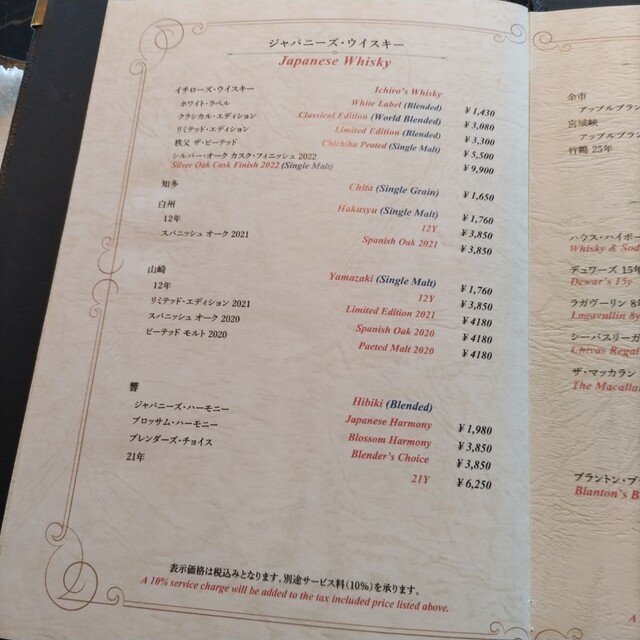 ジャパニーズ・ウイスキー
Japanese Whisky
イチローズ・ウイスキー Ichiro's Whisky
ホワイト・ラベル White Label (Blended) ¥1,430
クラシカル・エディション Classical Edition (World Blended) ¥3,080
リミテッド・エディション Limited Edition (Blended) ¥3,300
秩父 ザ・ピーテッド Chichibu Peated (Single Malt) ¥5,500
シルバー・オーク カスク・フィニッシュ 2022 ¥9,900
Silver Oak Cask Finish 2022 (Single Malt)
知多 Chita (Single Grain) ¥1,650
白州 Hakusyu (Single Malt) ¥1,760
12年 12Y ¥3,850
スパニッシュ オーク 2021 Spanish Oak 2021 ¥3,850
山崎 Yamazaki (Single Malt) ¥1,760
12年 12Y ¥3,850
リミテッド・エディション 2021 Limited Edition 2021 ¥4180
スパニッシュ オーク 2020 Spanish Oak 2020 ¥4180
ピーテッド モルト 2020 Paeted Malt 2020 ¥4180
響 Hibiki (Blended)
ジャパニーズ・ハーモニー Japanese Harmony ¥1,980
ブロッサム・ハーモニー Blossom Harmony ¥3,850
ブレンダーズ・チョイス Blender's Choice ¥3,850
21年 21Y ¥6,250
表示価格は税込みとなります。別途サービス料(10%)を承ります。
A 10% service charge will be added to the tax included price listed above.
余市
アップルブラン
宮城峡
アップルブラン
竹鶴 25年
ハウス・ハイボー
Whisky & Sod
デュワーズ 15年
Dewar's 15y
ラガヴーリン 8年
Lagavullin 8y
シーバスリーガ
Chivas Regal
ザ・マッカラン
The Macallan
ブラントン・ブ
Blanton's B
A